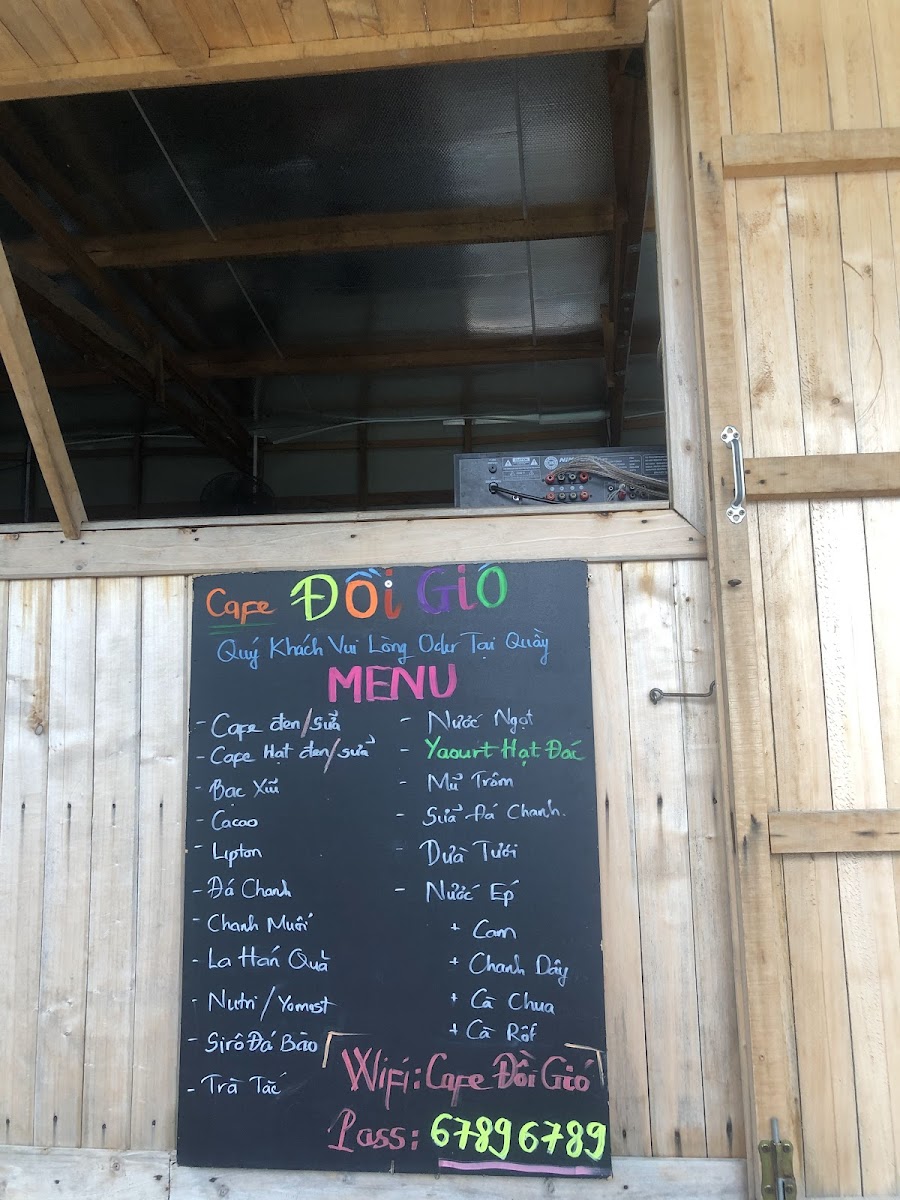 Cafe ĐỒi GiÓ
Quý Khách Vui Lòng Oder Tại Quầy
MENU
- Cafe đen/sữa
- Cafe Hạt đen/sữa
- Bạc Xỉu
- Cacao
- Lipton
- Đá Chanh
- Chanh Muối
- La Hán Quả
- Nutri/Yomost
- Sirô Đá Bào
- Trà Tắc
- Nước Ngọt
- Yaourt Hạt Đác
- Mủ Trôm
- Sữa Đá Chanh.
- Dừa Tươi
- Nước Ép
+ Cam
+ Chanh Dây
+ Cà Chua
+ Cà Rốt
Wifi: Cafe Đồi Gió
Pass: 67896789